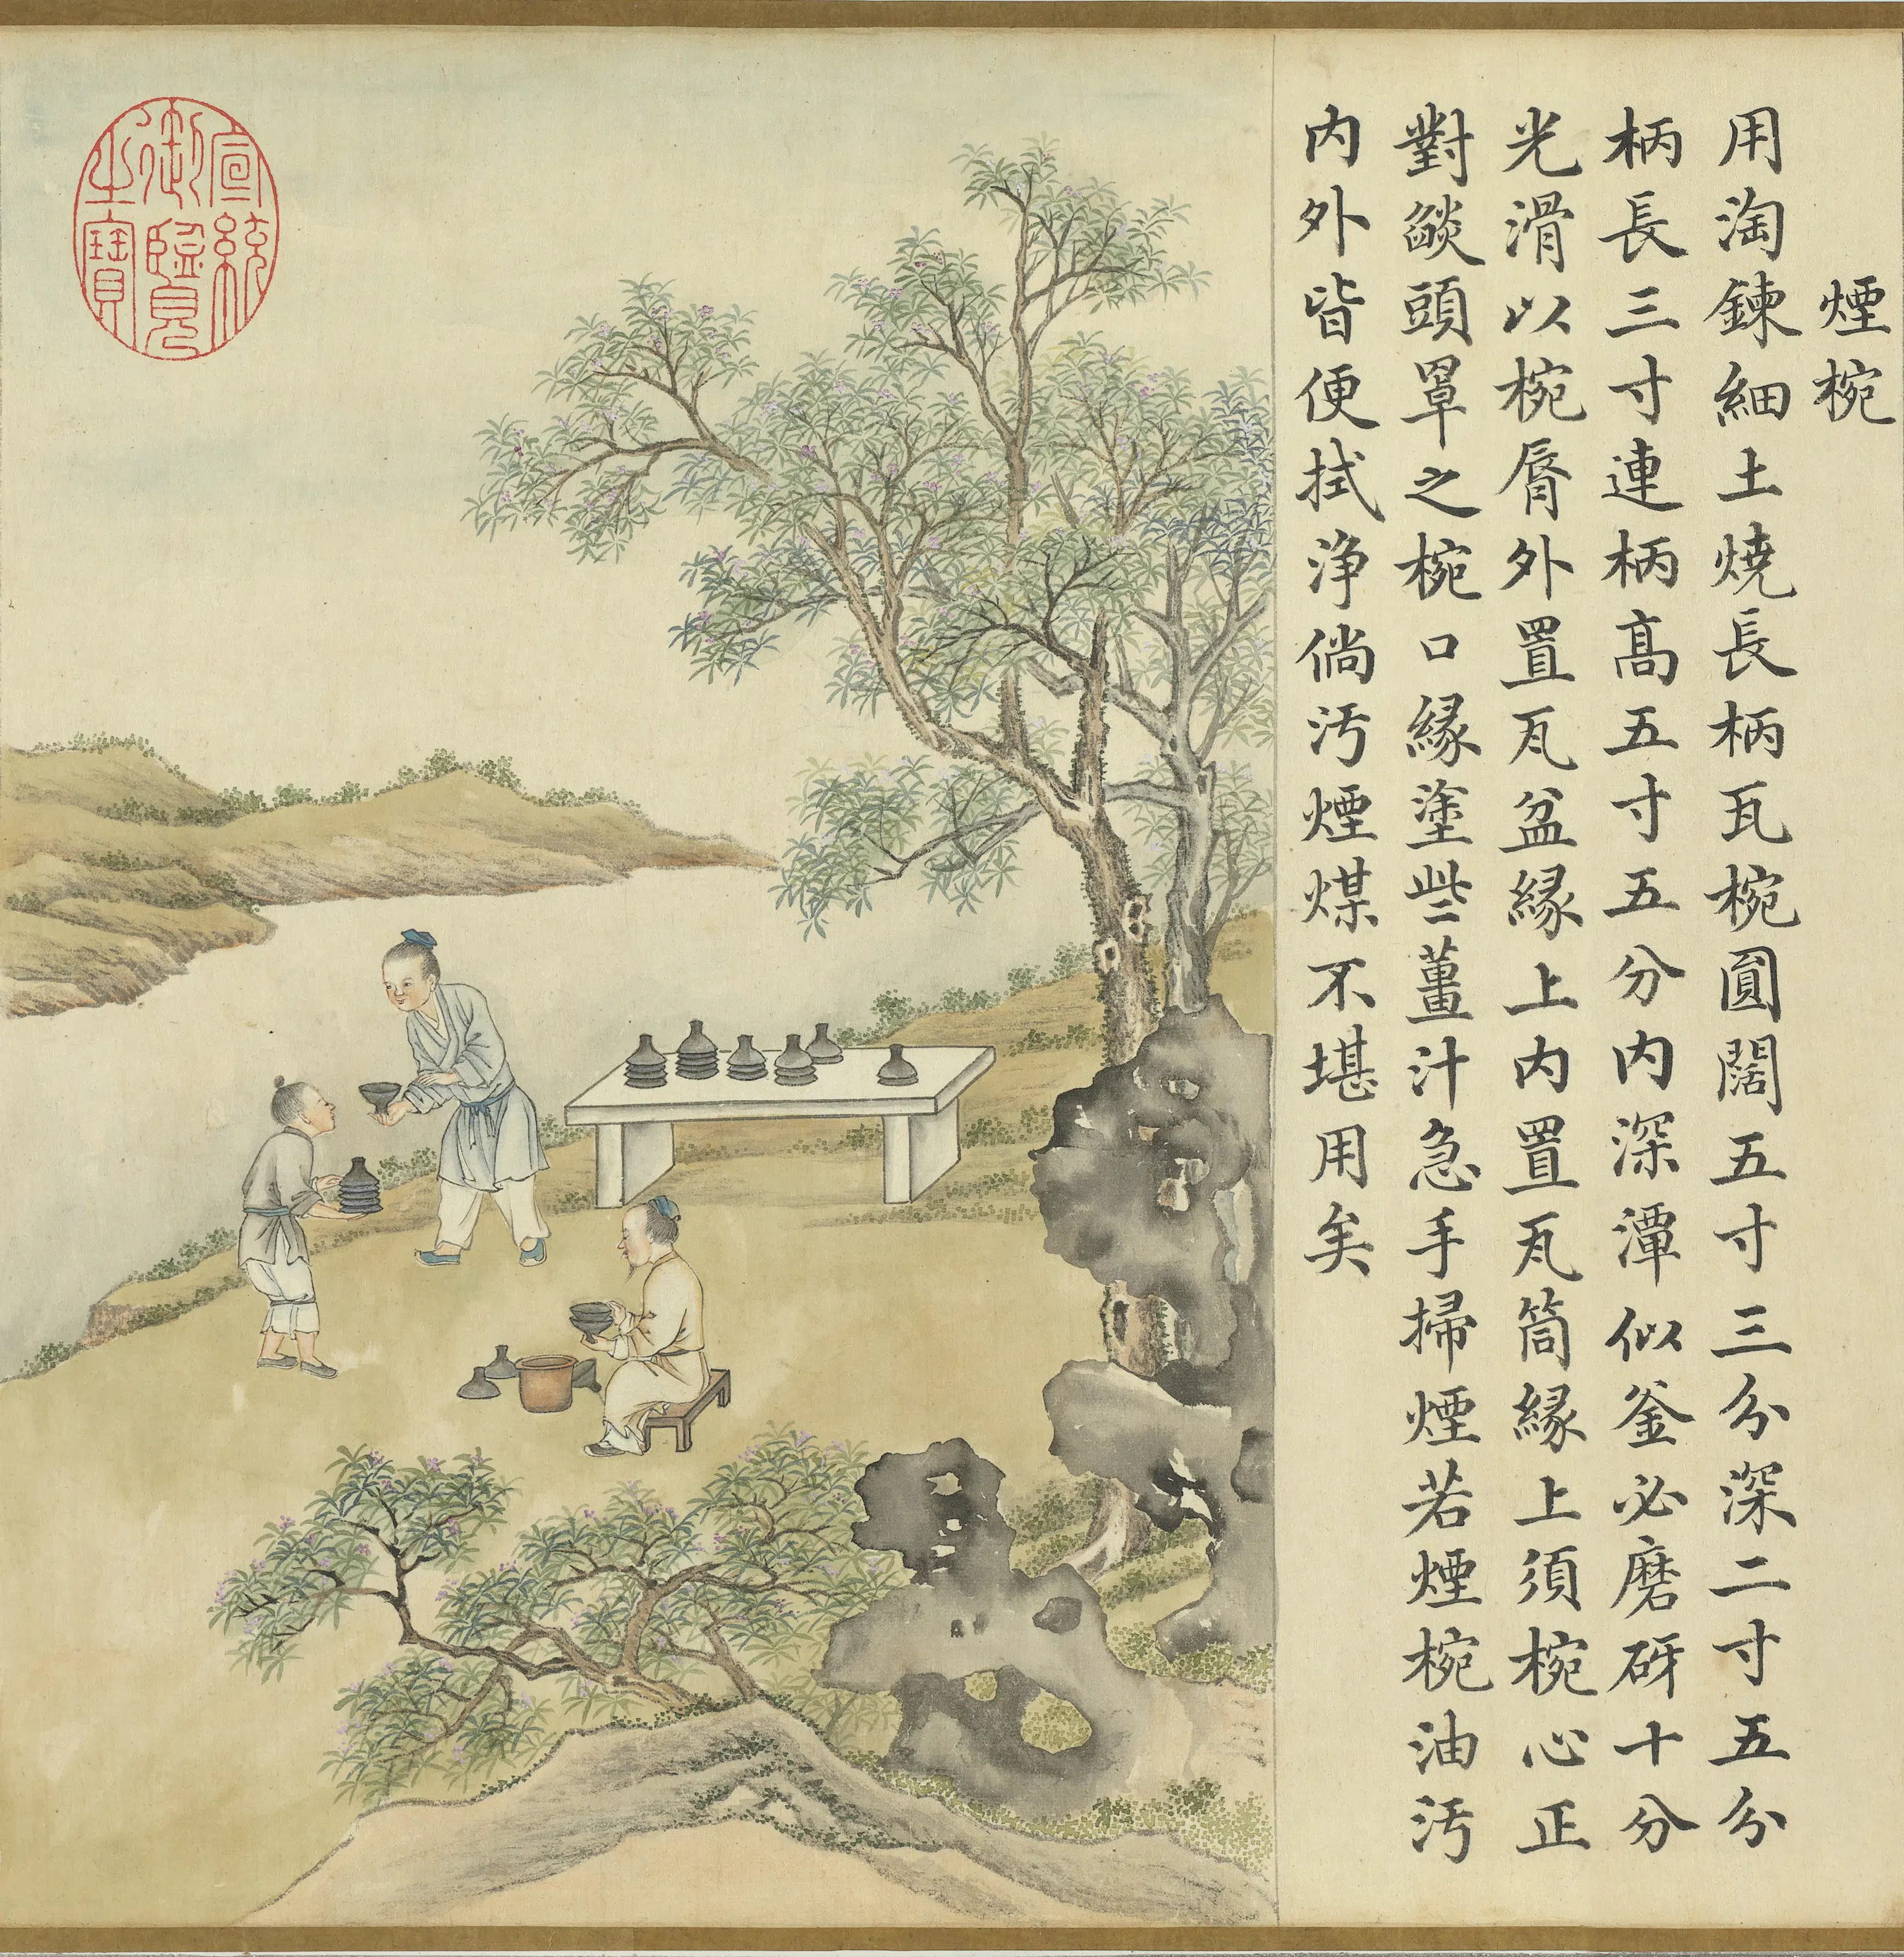 煙椀
用淘鍊細土燒長柄瓦椀圓闊五寸三分深二寸五分
柄長三寸連柄髙五寸五分内深潭似釜必磨砑十分
光滑以椀脣外置瓦盆縁上内置瓦筒縁上須椀心正
對燄頭罩之椀口縁塗些薑汁急手掃煙若煙椀油汚
内外皆便拭浄倘汚煙煤不堪用矣
宣統
御覽
之寶